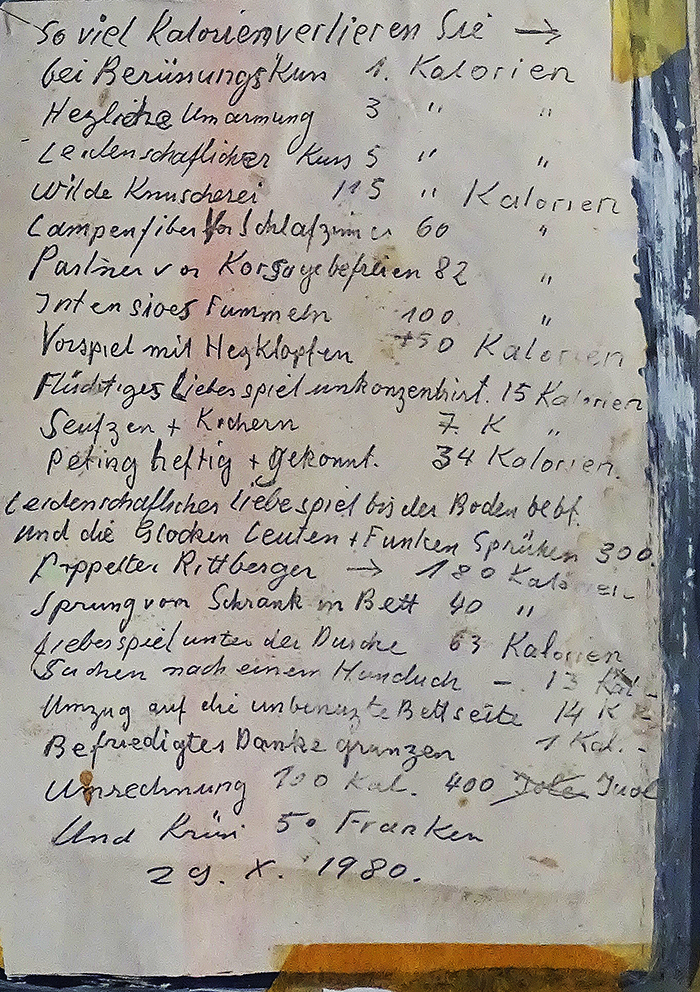 So viel Kalorienverlieren Sie →
bei Berüssungskuss 1. Kalorien
Hezliche Umarmung 3 " "
Leidenschaflicher Kuss 5 " "
Wilde Knuscherei 115 " Kalorien
Lampenfiber Vor Schlafzimer 60 "
Partner von Korsage befreien 82 "
Intensives Fummeln 100 "
Vorspiel mit Hezklopfen +50 Kalorien
Flüchtiges Liebesspiel unkonzentrirt. 15 Kalorien
Seufzen + Kichern 7. K "
Peting heftig + gekonnt. 34 Kalorien.
Leidenschaflicher Liebespiel bis der Boden bebt.
Und die Glocken Leuten + Funken Sprühen 300.
Doppelter Rittberger → 180 Kalorien
Sprung vom Schrank in Bett 40 "
Liebesspiel unter der Dusche 63 Kalorien
Suchen nach einem Handuch – 13 Kal –
Umzug auf die unbenuzte Bettseite 14 K
Befriedigtes Danke grunzen 1 Kal. –
Umrechnung 100 Kal. 400 Juol
Und 50 Franken
29. X. 1980.